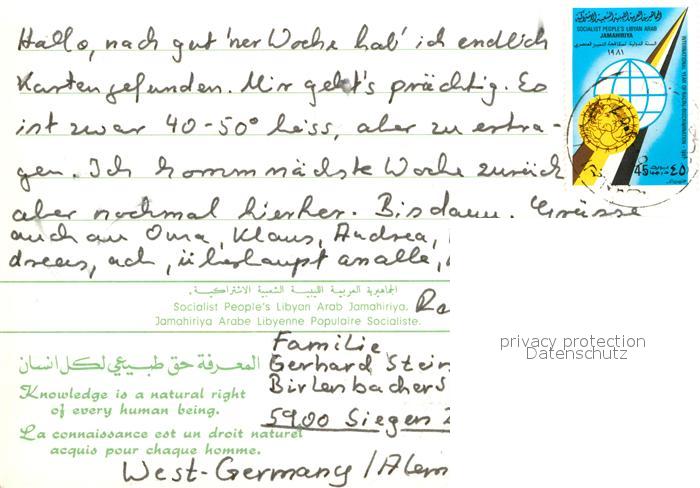 Hallo, nach gut 'ner Woche hab' ich endlich
Karten gefunden. Mir geht's prächtig. Es
ist zwar 40-50° heiss, aber zu ertra-
gen. Ich komm nächste Woche zurück
aber nochmal hierher. Bis dann. Grüsse
auch an Oma, Klaus, Andrea,
dreas, ach, überhaupt an alle,
الجماهيرية العربية الليبية الشعبية الاشتراكية
SOCIALIST PEOPLE'S LIBYAN ARAB
JAMAHIRIYA
١٩٨١
45 ٤٥
الجماهيرية العربية الليبية الشعبية الاشتراكية.
Socialist People's Libyan Arab Jamahiriya.
Jamahiriya Arabe Libyenne Populaire Socialiste.
المعرفة حق طبيعي لكل انسان
Knowledge is a natural right
of every human being.
La connaissance est un droit naturel
acquis pour chaque homme.
Familie
Gerhard Stein
Birlenbachers
5900 Siegen 2
West-Germany / Alem
privacy protection
Datenschutz